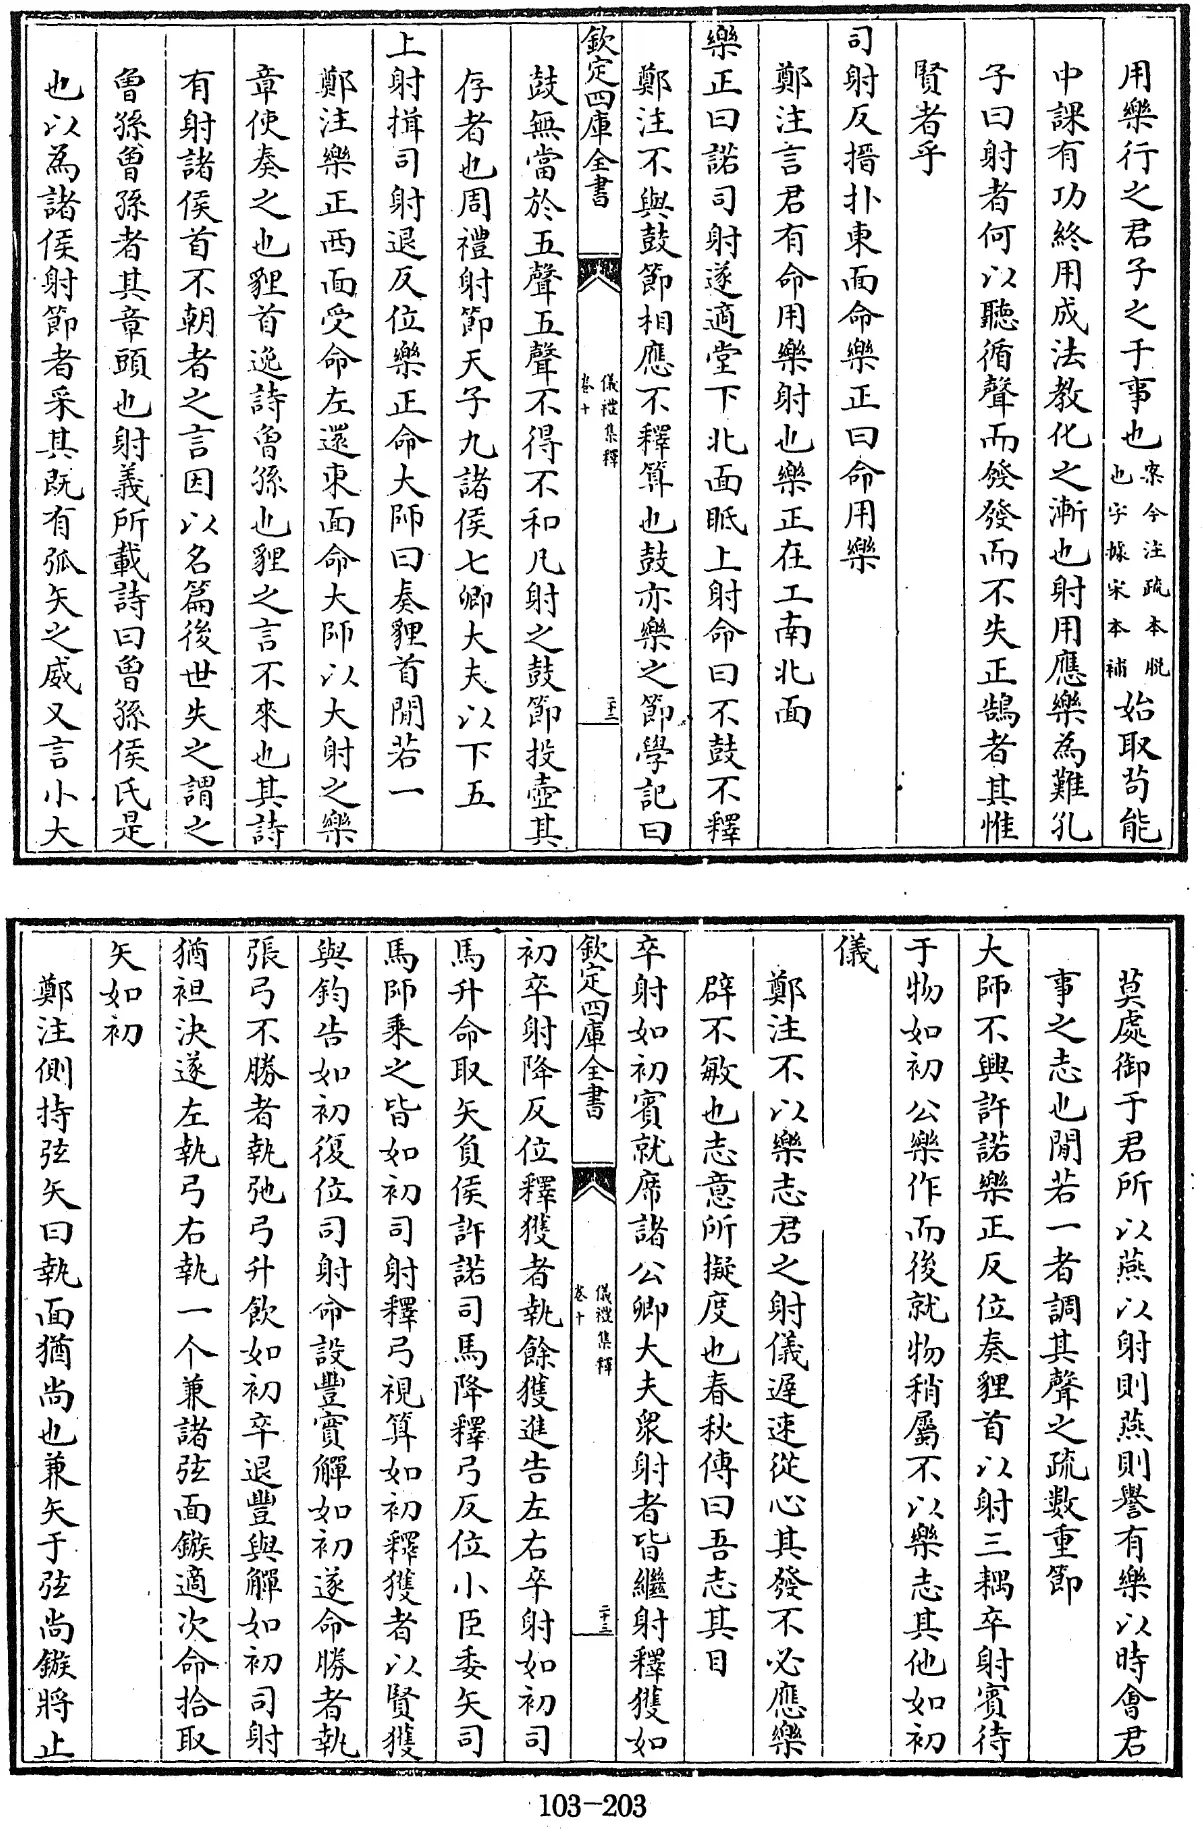 用樂行之君子之于事也案今注疏本脱也字據宋本補始取苟能
中課有功終用成法教化之漸也射用應樂為難孔
子曰射者何以聽循聲而發發而不失正鵠者其惟
賢者乎
司射反搢扑東面命樂正曰命用樂
鄭注言君有命用樂射也樂正在工南北面
樂正曰諾司射遂適堂下北面眂上射命曰不鼓不釋
鄭注不與鼓節相應不釋算也鼓亦樂之節學記曰
欽定四庫全書
儀禮集釋
卷十
二十三
鼓無當於五聲五聲不得不和凡射之鼓節投壺其
存者也周禮射節天子九諸侯七卿大夫以下五
上射揖司射退反位樂正命大師曰奏貍首閒若一
鄭注樂正西面受命左還東面命大師以大射之樂
章使奏之也貍首逸詩曾孫也貍之言不來也其詩
有射諸侯首不朝者之言因以名篇後世失之謂之
曾孫曾孫者其章頭也射義所載詩曰曾孫侯氏是
也以為諸侯射節者采其既有弧矢之威又言小大
莫處御于君所以燕以射則燕則譽有樂以時會君
事之志也閒若一者調其聲之疏數重節
大師不興許諾樂正反位奏貍首以射三耦卒射賓待
于物如初公樂作而後就物稍屬不以樂志其他如初
儀
鄭注不以樂志君之射儀遲速從心其發不必應樂
辟不敏也志意所擬度也春秋傳曰吾志其目
卒射如初賓就席諸公卿大夫眾射者皆繼射釋獲如
欽定四庫全書
儀禮集釋
卷十
二十三
初卒射降反位釋獲者執餘獲進告左右卒射如初司
馬升命取矢負侯許諾司馬降釋弓反位小臣委矢司
馬師乘之皆如初司射釋弓視算如初釋獲者以賢獲
與鈞告如初復位司射命設豐實觶如初遂命勝者執
張弓不勝者執弛弓升飲如初卒退豐與觶如初司射
猶袒決遂左執弓右執一个兼諸弦面鏃適次命拾取
矢如初
鄭注側持弦矢曰執面猶尚也兼矢于弦尚鏃將止
103-203